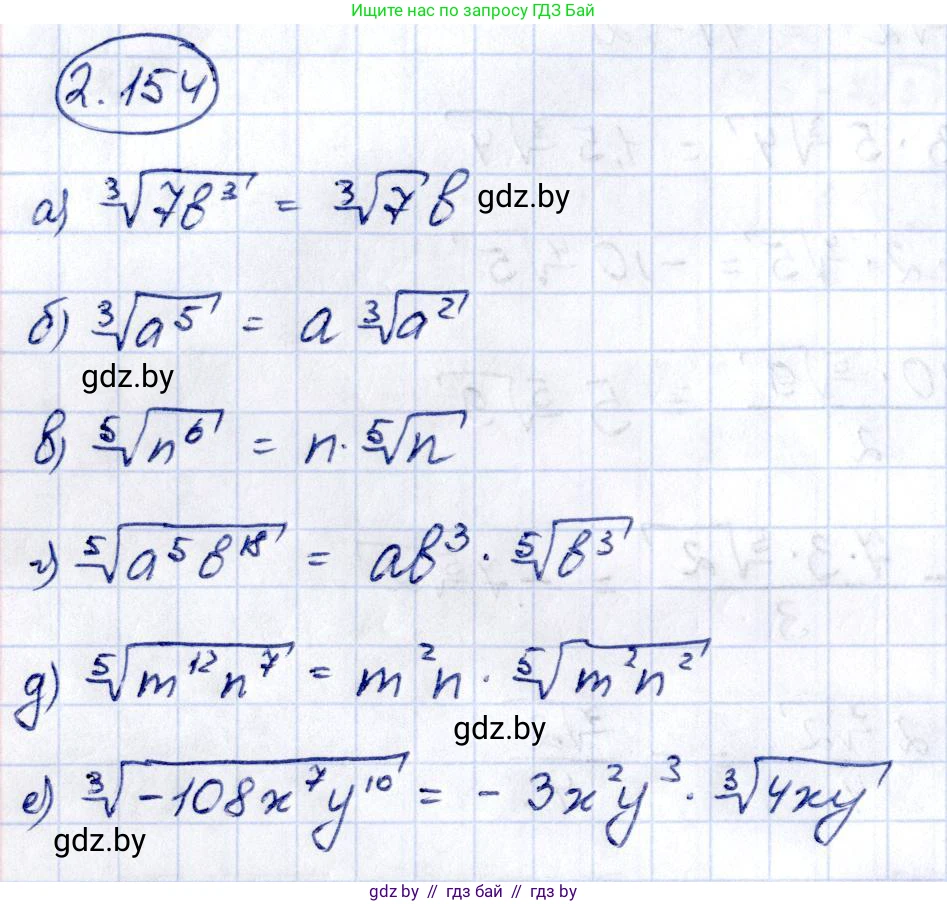 Ищите нас по запросу ГДЗ Бай
2.154
а) ∛(7b³) = ∛7 b gdz.by
б) ∛(a⁵) = a ∛(a²)
gdz.by
в) ⁵√(n⁶) = n · ⁵√n
г) ⁵√(a⁵b¹⁸) = ab³ · ⁵√(b³)
д) ⁵√(m¹²n⁷) = m²n · ⁵√(m²n²)
gdz.by
е) ∛(-108x⁷y¹⁰) = - 3x²y³ · ∛(4xy)
gdz.by
gdz.by // гдз бай // gdz.by